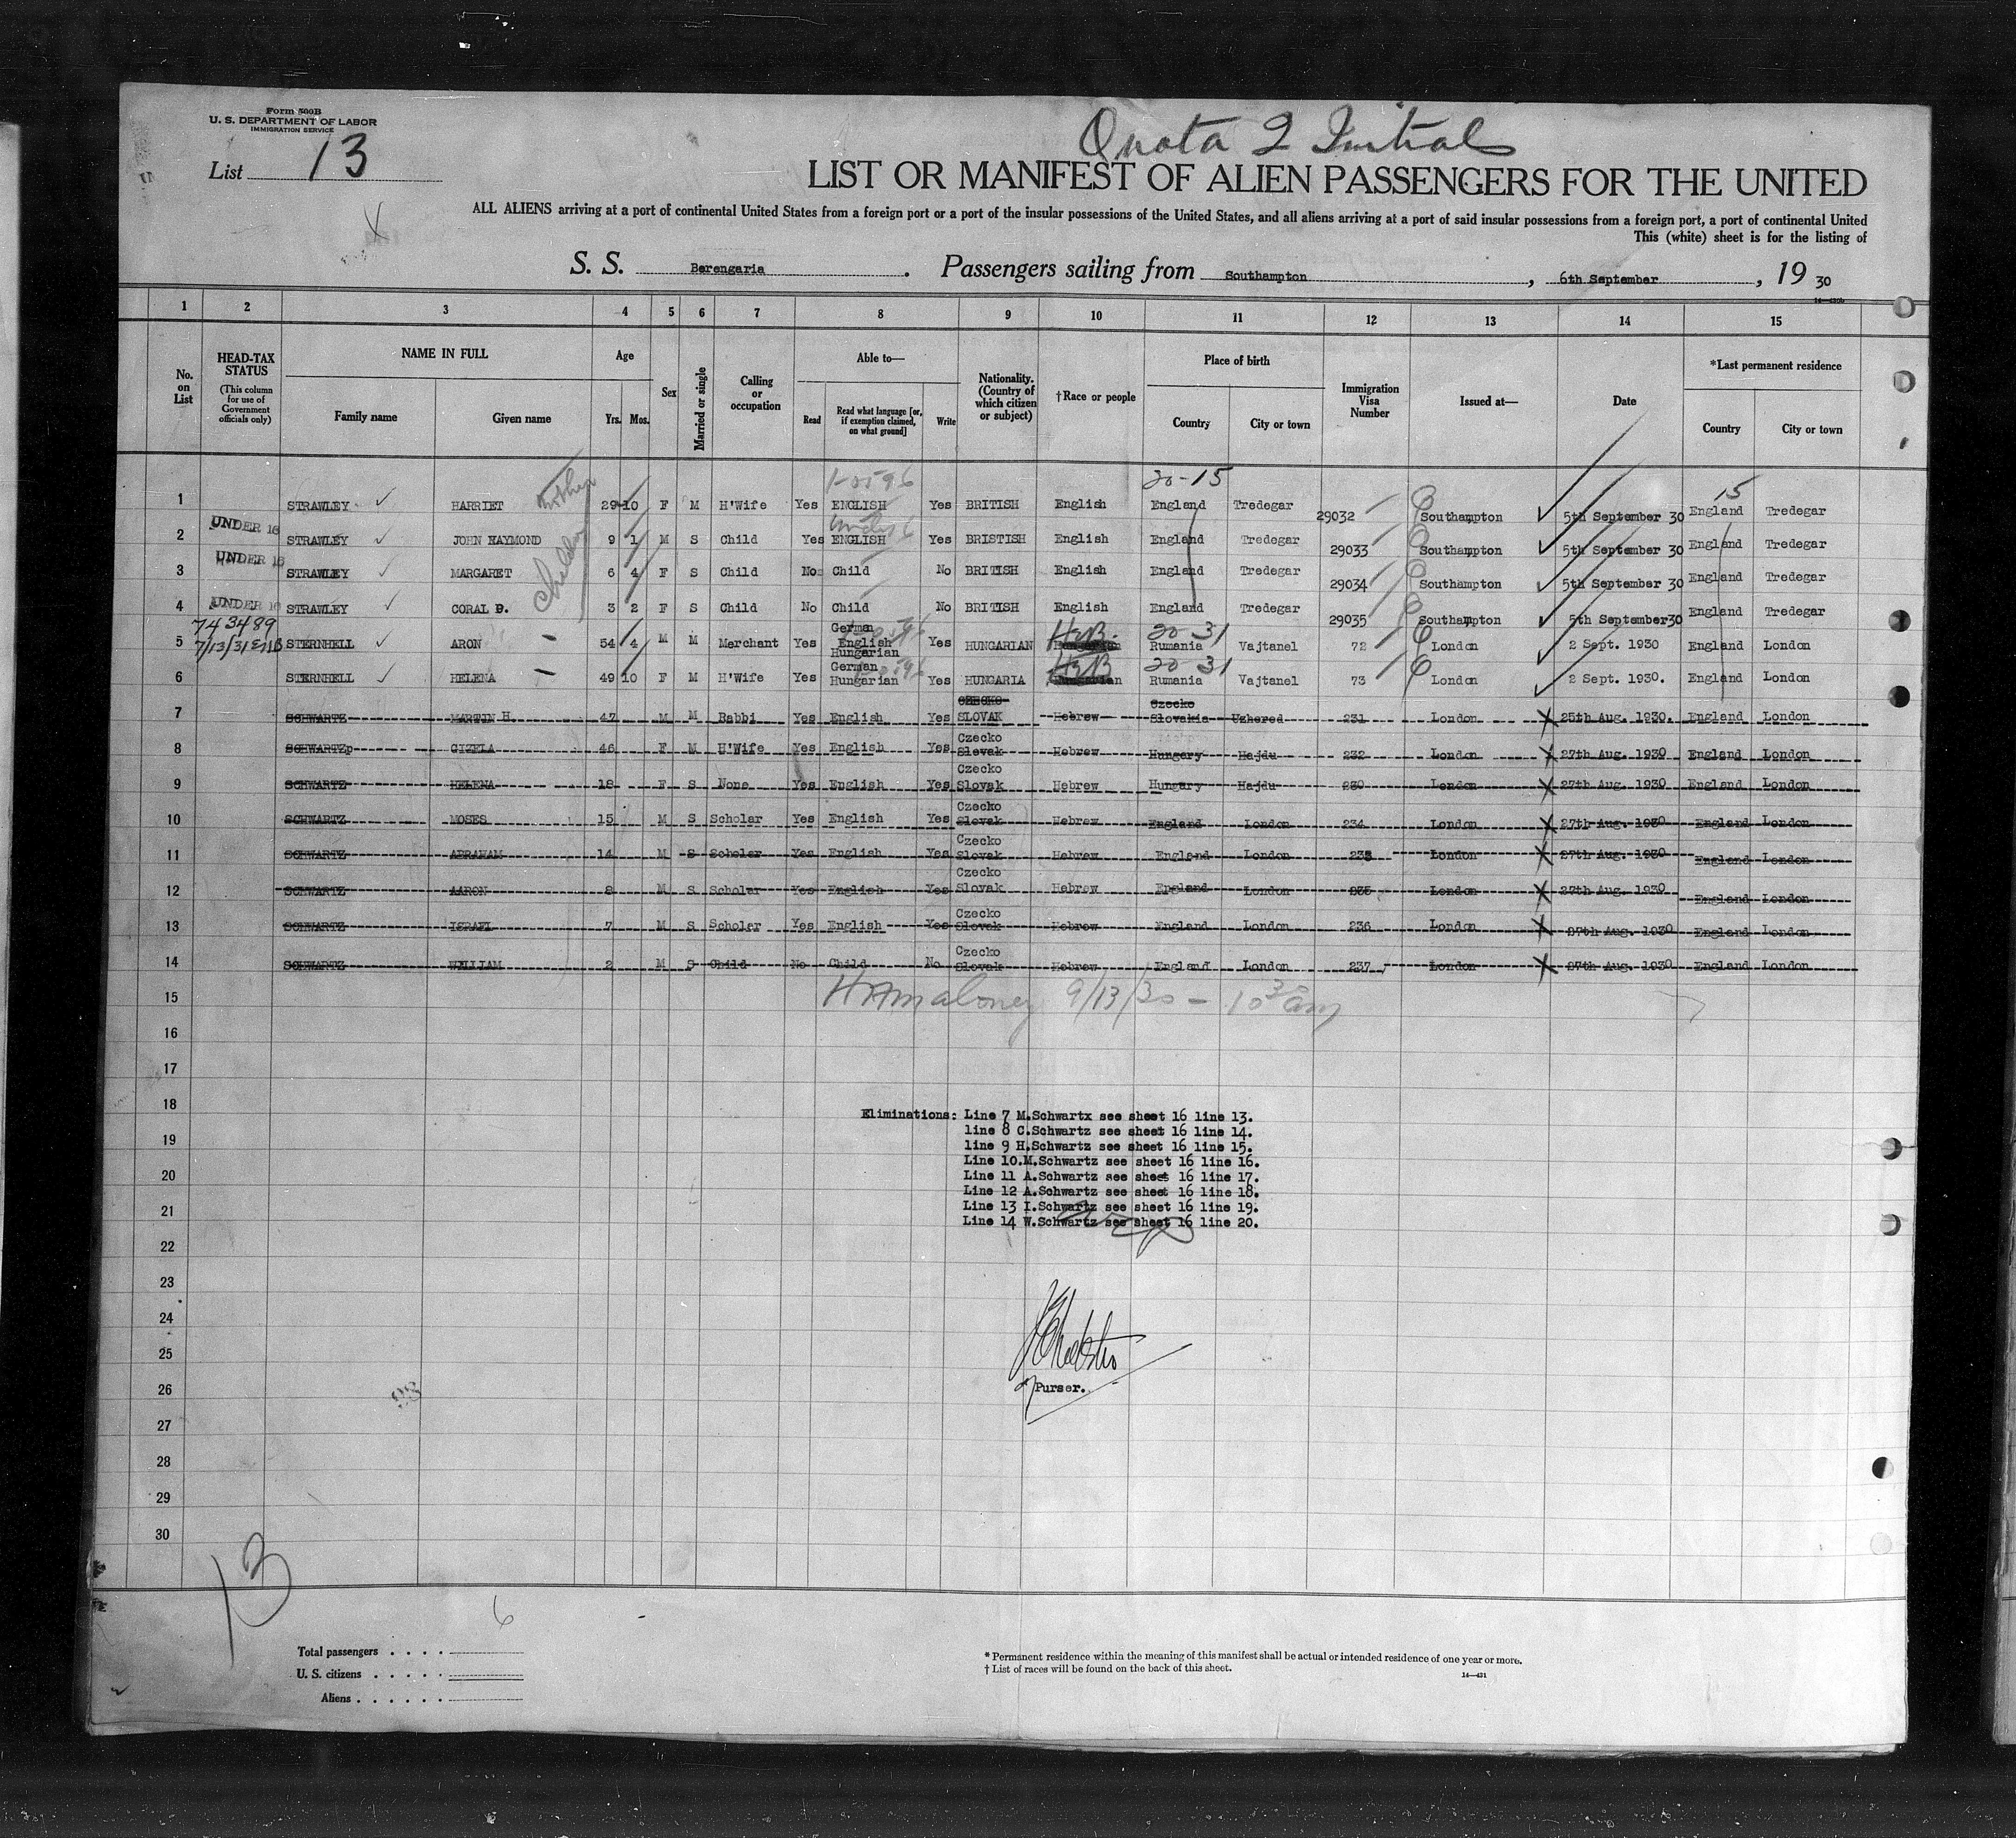 Form 500B
U. S. DEPARTMENT OF LABOR
IMMIGRATION SERVICE
List 13
Quota 2 Initial
LIST OR MANIFEST OF ALIEN PASSENGERS FOR THE UNITED
ALL ALIENS arriving at a port of continental United States from a foreign port or a port of the insular possessions of the United States, and all aliens arriving at a port of said insular possessions from a foreign port, a port of continental United
This (white) sheet is for the listing of
S. S. Berengaria. Passengers sailing from Southampton, 6th September, 19 30
1 2 3 4 5 6 7 8 9 10 11 12 13 14 15
No. on List
HEAD-TAX STATUS (This column for use of Government officials only)
NAME IN FULL Family name Given name
Age Yrs. Mos.
Sex
Married or single
Calling or occupation
Able to— Read Read what language [or, if exemption claimed, on what ground] Write
Nationality. (Country of which citizen or subject)
†Race or people
Place of birth Country City or town
Immigration Visa Number
Issued at—
Date
*Last permanent residence Country City or town
20-15 15
1 STRAWLEY HARRIET Mother 29 10 F M H'Wife Yes ENGLISH Yes BRITISH English England Tredegar 29032 Southampton 5th September 30 England Tredegar
2 UNDER 16 STRAWLEY JOHN HAYMOND Children 9 1 M S Child Yes ENGLISH Yes BRISTISH English England Tredegar 29033 Southampton 5th September 30 England Tredegar
3 UNDER 16 STRAWLEY MARGARET 6 4 F S Child No Child No BRITISH English England Tredegar 29034 Southampton 5th September 30 England Tredegar
4 UNDER 16 STRAWLEY CORAL D. 3 2 F S Child No Child No BRITISH English England Tredegar 29035 Southampton 5th September 30 England Tredegar
743489
5 7/13/31 STERNHELL ARON 54 4 M M Merchant Yes German English Hungarian Yes HUNGARIAN Heb. 20 31 Rumania Vajtanel 72 London 2 Sept. 1930 England London
6 STERNHELL HELENA 49 10 F M H'Wife Yes German Hungarian Yes HUNGARIA Heb 20 31 Rumania Vajtanel 73 London 2 Sept. 1930. England London
7 SCHWARTZ MARTIN H. 47 M M Rabbi Yes English Yes CZECKO SLOVAK Hebrew Czecko Slovakia Uzhored 231 London X 25th Aug. 1930. England London
8 SCHWARTZp GIZELA 46 F M H'Wife Yes English Yes Czecko Slovak Hebrew Hungary Hajdu 232 London X 27th Aug. 1930 England London
9 SCHWARTZ HELENA 18 F S None Yes English Yes Czecko Slovak Hebrew Hungary Hajdu 230 London X 27th Aug. 1930 England London
10 SCHWARTZ MOSES 15 M S Scholar Yes English Yes Czecko Slovak Hebrew England London 234 London X 27th Aug. 1930 England London
11 SCHWARTZ ABRAHAM 14 M S Scholer Yes English Yes Czecko Slovak Hebrew England London London X 27th Aug. 1930 England London
12 SCHWARTZ AARON 8 M S Scholer Yes English Yes Czecko Slovak Hebrew England London 235 London X 27th Aug. 1930 England London
13 SCHWARTZ ISRAEL 7 M S Scholer Yes English Yes Czecko Slovak Hebrew England London 236 London X 27th Aug. 1930 England London
14 SCHWARTZ WILLIAM 2 M S Child No Child No Czecko Slovak Hebrew England London 237 London X 27th Aug. 1930 England London
15 Maloney 9/13/30 - 10 30 am
16
17
18
Eliminations: Line 7 M.Schwartx see sheet 16 line 13.
line 8 C.Schwartz see sheet 16 line 14.
19
line 9 H.Schwartz see sheet 16 line 15.
Line 10.M.Schwartz see sheet 16 line 16.
20
Line 11 A.Schwartz see sheet 16 line 17.
Line 12 A.Schwartz see sheet 16 line 18.
21
Line 13 I.Schwartz see sheet 16 line 19.
Line 14 W.Schwartz see sheet 16 line 20.
22
23
24
25
26
Purser.
27
28
29
30
13
6
Total passengers
U. S. citizens
Aliens
* Permanent residence within the meaning of this manifest shall be actual or intended residence of one year or more.
† List of races will be found on the back of this sheet.
14—431